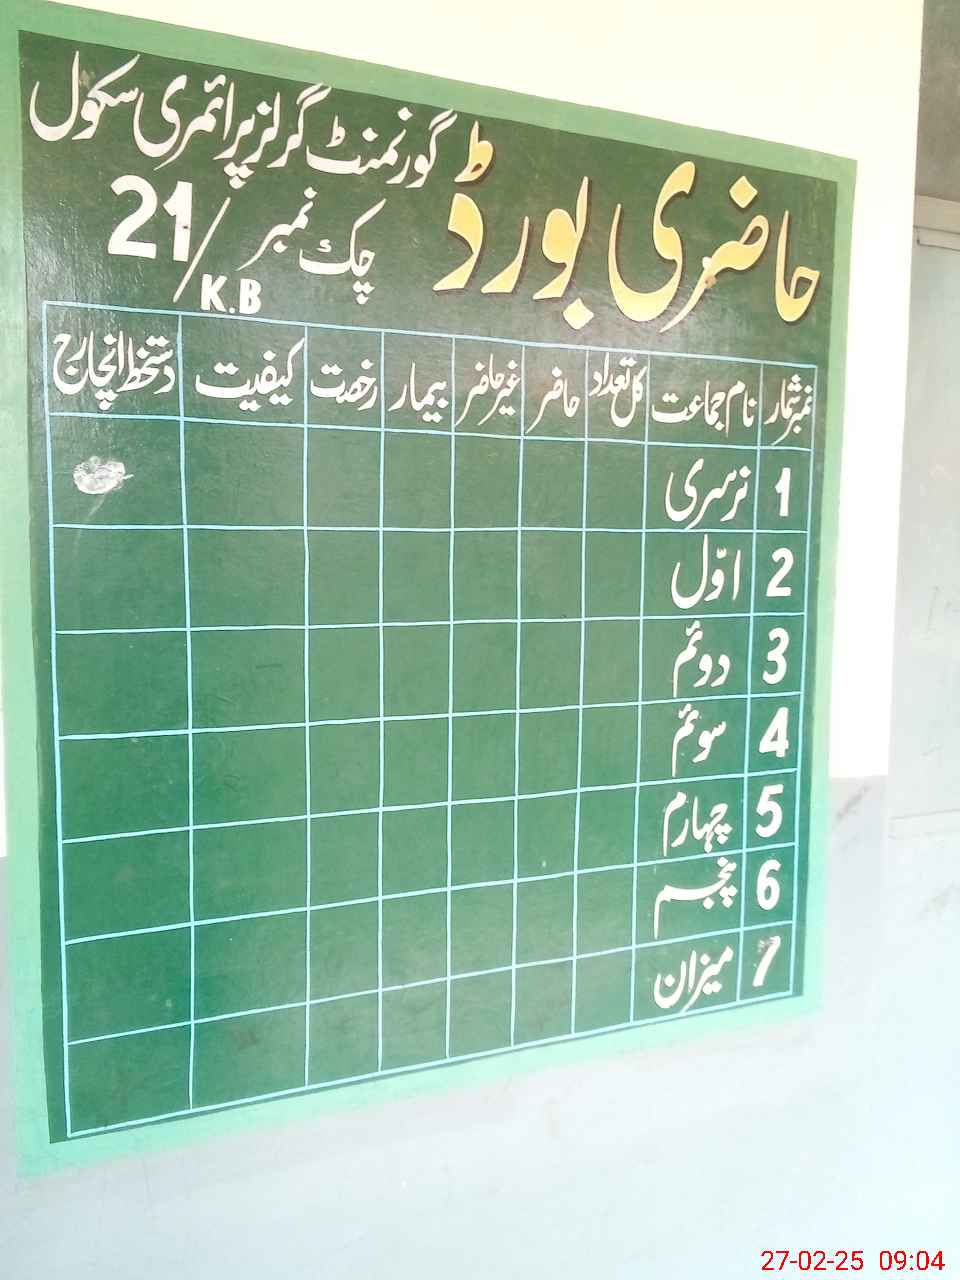 حاضری بورڈ
گورنمنٹ گرلز پرائمری سکول
چک نمبر 21/K.B
نمبر شمار نام جماعت کل تعداد حاضر غیر حاضر بیمار رخصت کیفیت دستخط انچارج
1 نرسری
2 اوّل
3 دوئم
4 سوئم
5 چہارم
6 پنجم
7 میزان
27-02-25 09:04